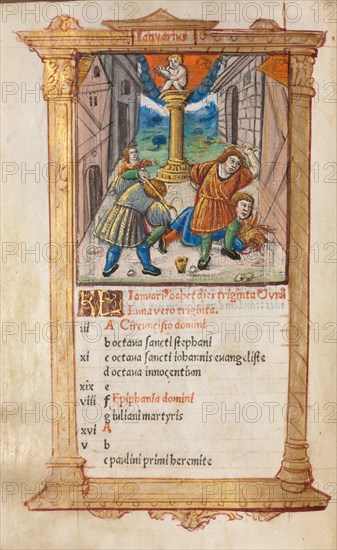 Januarius
KL Januari⁹ habet dies triginta Unū
Luna vero triginta.
iii A Circuncisio domini
b octava sancti stephani
xi c octava sancti iohannis euangeliste
d octava innocentum
xix e
viii f Epiphania domini
g iuliani martyris
xvi A
v b
c paulini primi heremite